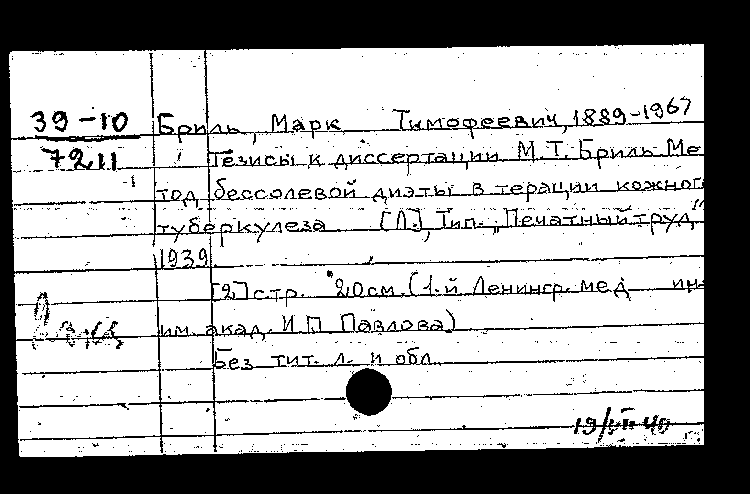 39-10
7211
Бриль, Марк Тимофеевич, 1889-1967
Тезисы к диссертации М.Т. Бриль Ме
тод бессолевой диэты в терации кожног
туберкулеза [Л.], Тип. „Печатный труд"
1939
[2] стр. 20см. (1-й Ленингр. мед ин-
им. акад. И.П Павлова)
Без тит. л. и обл.
19/VII 40